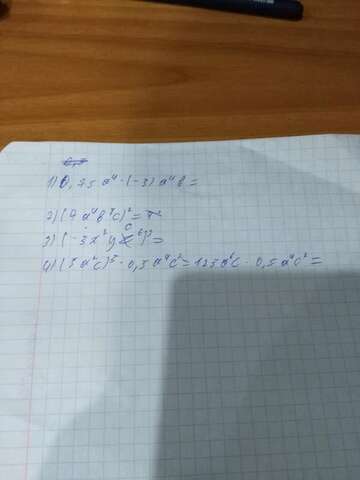 1) 0,25 a⁴ · (-3) a⁴ b =
2) (4 a⁴ b⁷ c)² =
3) (-3 x² y c⁶)³ =
4) (5 a²c)³ · 0,5 a⁴ c² = 125 a⁶ c · 0,5 a⁴ c² =